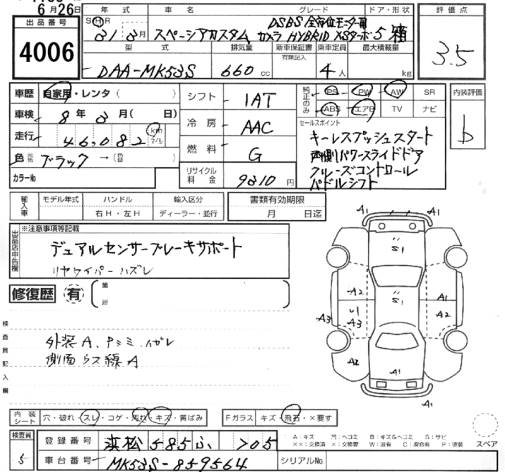 6月26日
出品番号
4006
年式 車名 グレード ドア・形状 評価点
31 3月 スペーシアカスタム DSBS 全方位モニター用カメラ HYBRID XSターボ 5 箱 3.5
型式 排気量 新車保証書 有無記入 乗車定員 最大積載量
DAA-MK53S 660 cc 4 人 kg
車歴 自家用・レンタ( )
車検 8年3月( 日)
走行 46,082 km
色 ブラック →( )
カラーNo
シフト IAT
冷房 AAC
燃料 G
リサイクル料金 9810 円
純正のみ PS PW AW SR
ABS エアB TV ナビ
セールスポイント
キーレスプッシュスタート
両側パワースライドドア
クルーズコントロール
パドルシフト
内装評価
b
輸入車 モデル年式 ハンドル 輸入区分
年 右H・左H ディーラー・並行
書類有効期限
月 日迄
※注意事項等記載
デュアルセンサーブレーキサポート
リヤワイパーハズレ
修復歴 有
箇所
検査員記入欄
外装A
側面 線A
A1 A1
S1
A2 S1 A2
A3 U1 A3 A1
A1 A1
内装シート 穴・破れ・スレ・コゲ・汚れ・キズ・黄ばみ
Fガラス キズ・飛石・×要す
スペア
検査員 5
登録番号 浜松 585 ふ 705
車台番号 MK53S-859564
シリアルNo